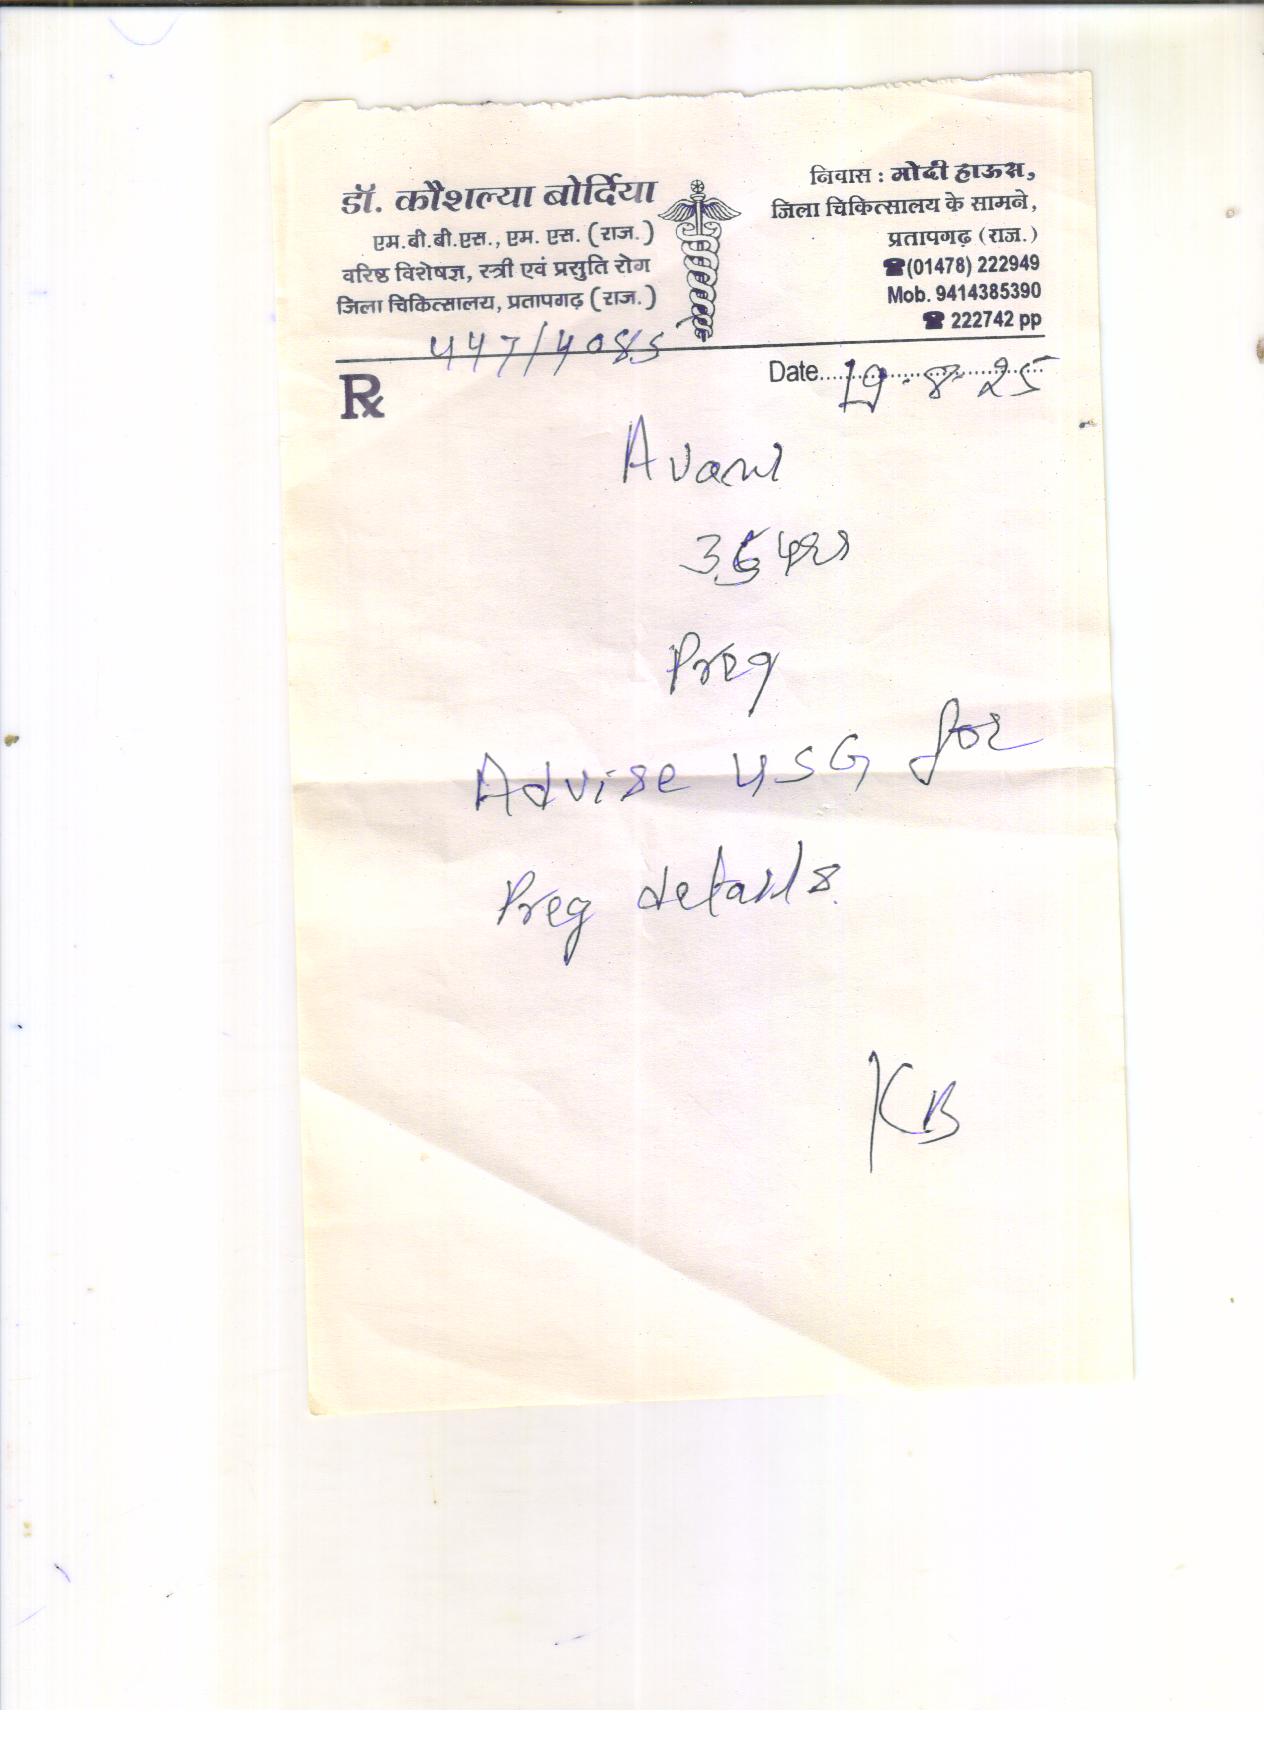 डॉ. कौशल्या बोर्दिया
एम.बी.बी.एस., एम. एस. (राज.)
वरिष्ठ विशेषज्ञ, स्त्री एवं प्रसुति रोग
जिला चिकित्सालय, प्रतापगढ़ (राज.)
निवास : मोदी हाऊस,
जिला चिकित्सालय के सामने,
प्रतापगढ़ (राज.)
☎(01478) 222949
Mob. 9414385390
☎ 222742 pp
447/4085
Rx
Date 19-8-25
Avani
Preg
Advise USG for
Preg details.
KB